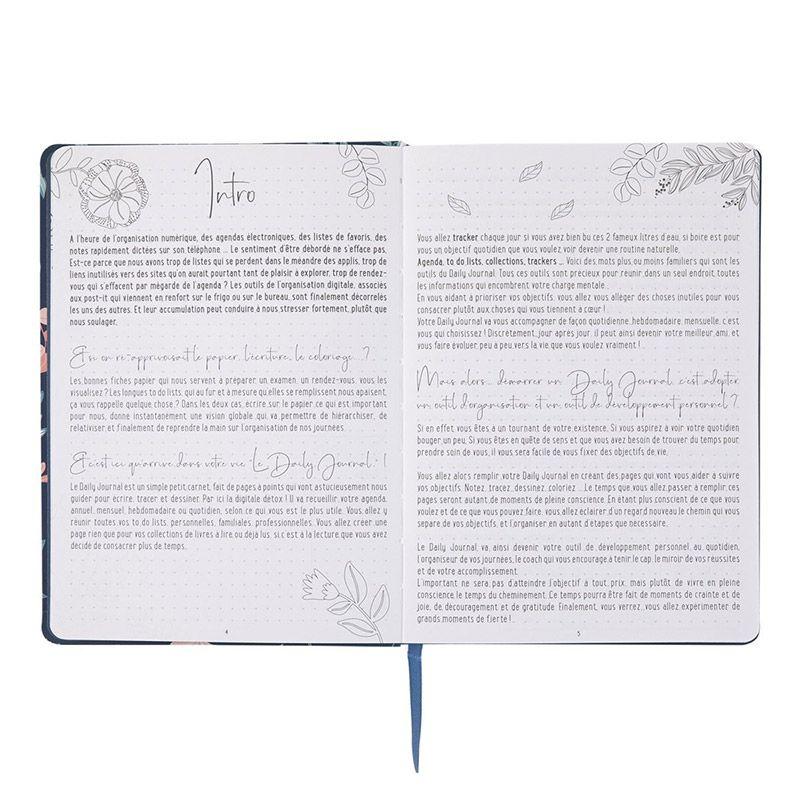 Intro
A l'heure de l'organisation numérique, des agendas électroniques, des listes de favoris, des
notes rapidement dictées sur son téléphone ... Le sentiment d'être débordé ne s'efface pas.
Est-ce parce que nous avons trop de listes qui se perdent dans le méandre des applis, trop de
liens inutilisés vers des sites qu'on aurait pourtant tant de plaisir à explorer, trop de rendez-
vous qui s'effacent par mégarde de l'agenda ? Les outils de l'organisation digitale, associés
aux post-it qui viennent en renfort sur le frigo ou sur le bureau, sont finalement décorrélés
les uns des autres. Et leur accumulation peut conduire à nous stresser fortement, plutôt que
nous soulager.
Et si on ré-apprivoisait le papier, l'écriture, le coloriage... ?
Les bonnes fiches papier qui nous servent à préparer un examen, un rendez-vous, vous les
visualisez ? Les longues to do lists, qui au fur et à mesure qu'elles se remplissent nous apaisent,
ça vous rappelle quelque chose ? Dans les deux cas, écrire sur le papier ce qui est important
pour nous, donne instantanément une vision globale qui va permettre de hiérarchiser, de
relativiser, et finalement de reprendre la main sur l'organisation de nos journées.
Et c'est ici qu'arrive dans votre vie "Le Daily Journal" !
Le Daily Journal est un simple petit carnet, fait de pages à points qui vont astucieusement nous
guider pour écrire, tracer et dessiner. Par ici la digitale détox ! Il va recueillir votre agenda,
annuel, mensuel, hebdomadaire ou quotidien, selon ce qui vous est le plus utile. Vous allez y
réunir toutes vos to do lists, personnelles, familiales, professionnelles. Vous allez créer une
page rien que pour vos collections de livres à lire ou déjà lus, si c'est à la lecture que vous avez
décidé de consacrer plus de temps.
4
Vous allez tracker chaque jour si vous avez bien bu ces 2 fameux litres d'eau, si boire est pour
vous un objectif quotidien que vous voulez rendre naturel.
Agenda, to do lists, collections, trackers ... Voici des mots plus ou moins familiers qui sont les
outils du Daily Journal. Tous ces outils sont précieux pour réunir dans un seul endroit, toutes
les informations qui encombrent votre charge mentale.
En vous aidant à prioriser vos objectifs, vous allez vous alléger des choses inutiles pour vous
consacrer plutôt aux choses qui vous tiennent à cœur !
Votre Daily Journal va vous accompagner de façon quotidienne, hebdomadaire, mensuelle, c'est
vous qui choisissez ! Discrètement, jour après jour, il peut ainsi devenir votre meilleur ami, et
vous faire évoluer peu à peu vers la vie que vous voulez vraiment !
Mais alors... démarrer un Daily Journal, c'est adopter
un outil d'organisation et un outil de développement personnel ?
Si en effet, vous êtes à un tournant de votre existence. Si vous aspirez à voir votre quotidien
bouger un peu. Si vous êtes en quête de sens et que vous avez besoin de trouver du temps pour
prendre soin de vous, il vous sera facile de vous fixer des objectifs de vie.
Vous allez alors remplir votre Daily Journal en créant des pages qui vont vous aider à suivre
vos objectifs. Notez, tracez, dessinez, coloriez ... Le temps que vous allez passer à remplir ces
pages seront autant de moments de pleine conscience. En étant plus conscient de ce que vous
voulez et de ce que vous pouvez faire, vous allez éclairer d'un regard nouveau le chemin qui vous
sépare de vos objectifs, et l'organiser en autant d'étapes que nécessaire.
Le Daily Journal va ainsi devenir votre outil de développement personnel au quotidien,
l'organiseur de vos journées, le coach qui vous encourage à tenir le cap, le miroir de vos réussites
et de votre accomplissement.
L'important ne sera pas d'atteindre l'objectif à tout prix, mais plutôt de vivre en pleine
conscience le temps du cheminement. Ce temps pourra être fait de moments de crainte et de
joie, de découragement et de gratitude. Finalement, vous verrez...vous allez expérimenter de
grands moments de fierté !
5